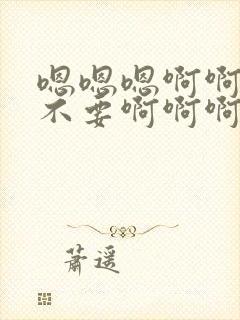 嗯嗯嗯啊啊
不要啊啊啊
萧遥